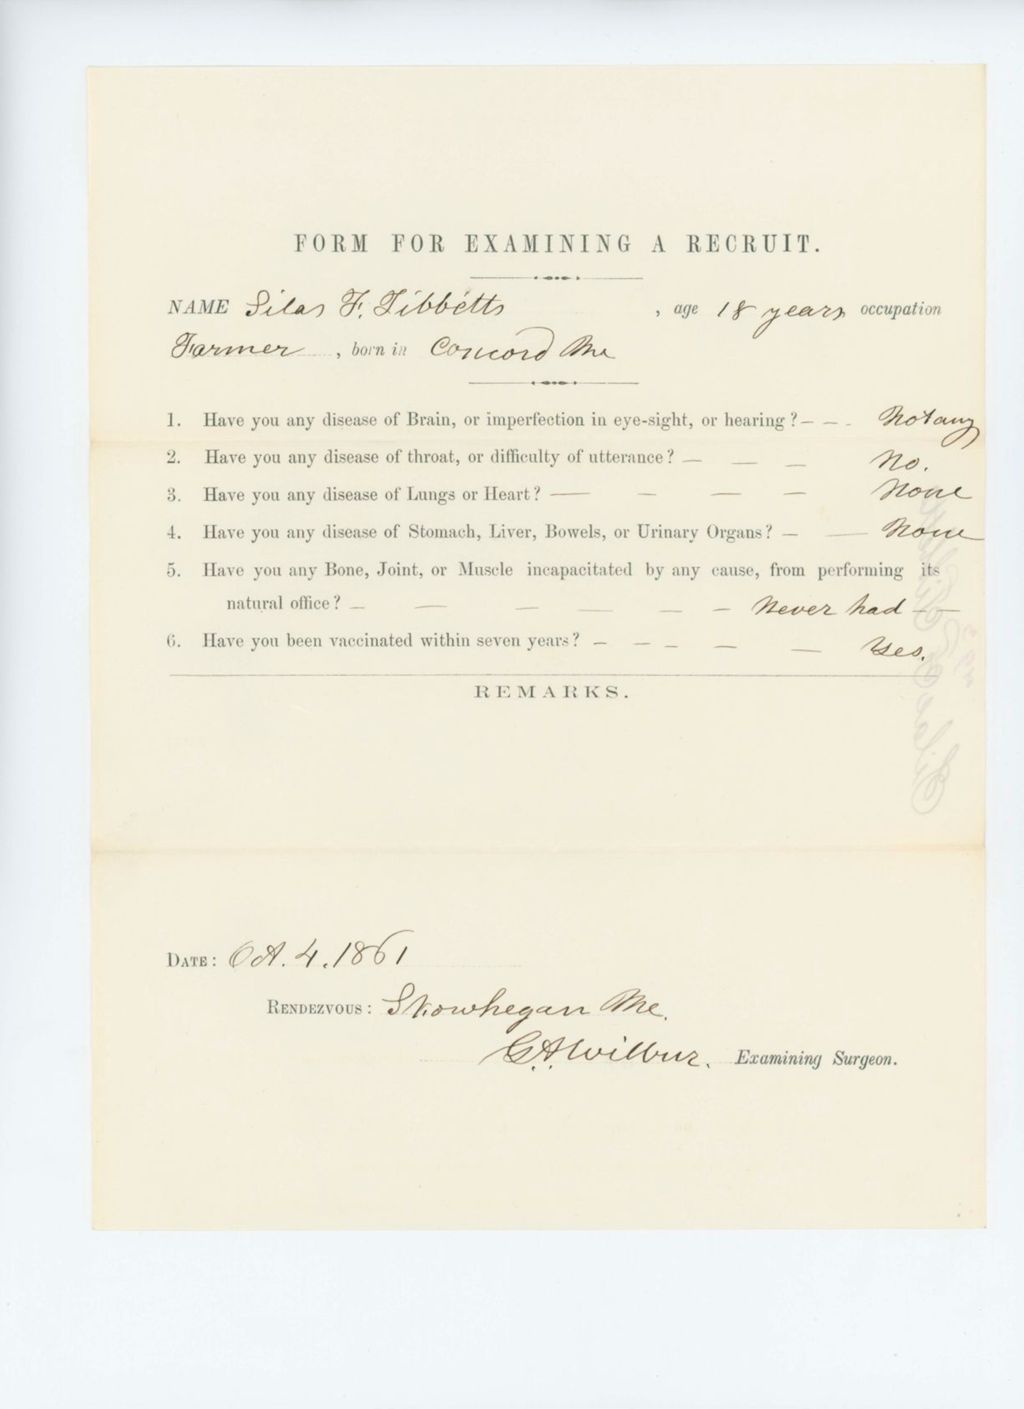 FORM FOR EXAMINING A RECRUIT.
NAME Silas F. Tibbetts, age 18 years occupation
Farmer, born in Concord Me
1. Have you any disease of Brain, or imperfection in eye-sight, or hearing? — — - Not any
2. Have you any disease of throat, or difficulty of utterance? — — — No.
3. Have you any disease of Lungs or Heart? — — — — None
4. Have you any disease of Stomach, Liver, Bowels, or Urinary Organs? — — None
5. Have you any Bone, Joint, or Muscle incapacitated by any cause, from performing its
natural office? — — — — — — Never had — —
6. Have you been vaccinated within seven years? — — — — — — Yes.
REMARKS.
DATE: Oct. 4. 1861
RENDEZVOUS: Skowhegan Me.
G.A. Wilbur. Examining Surgeon.